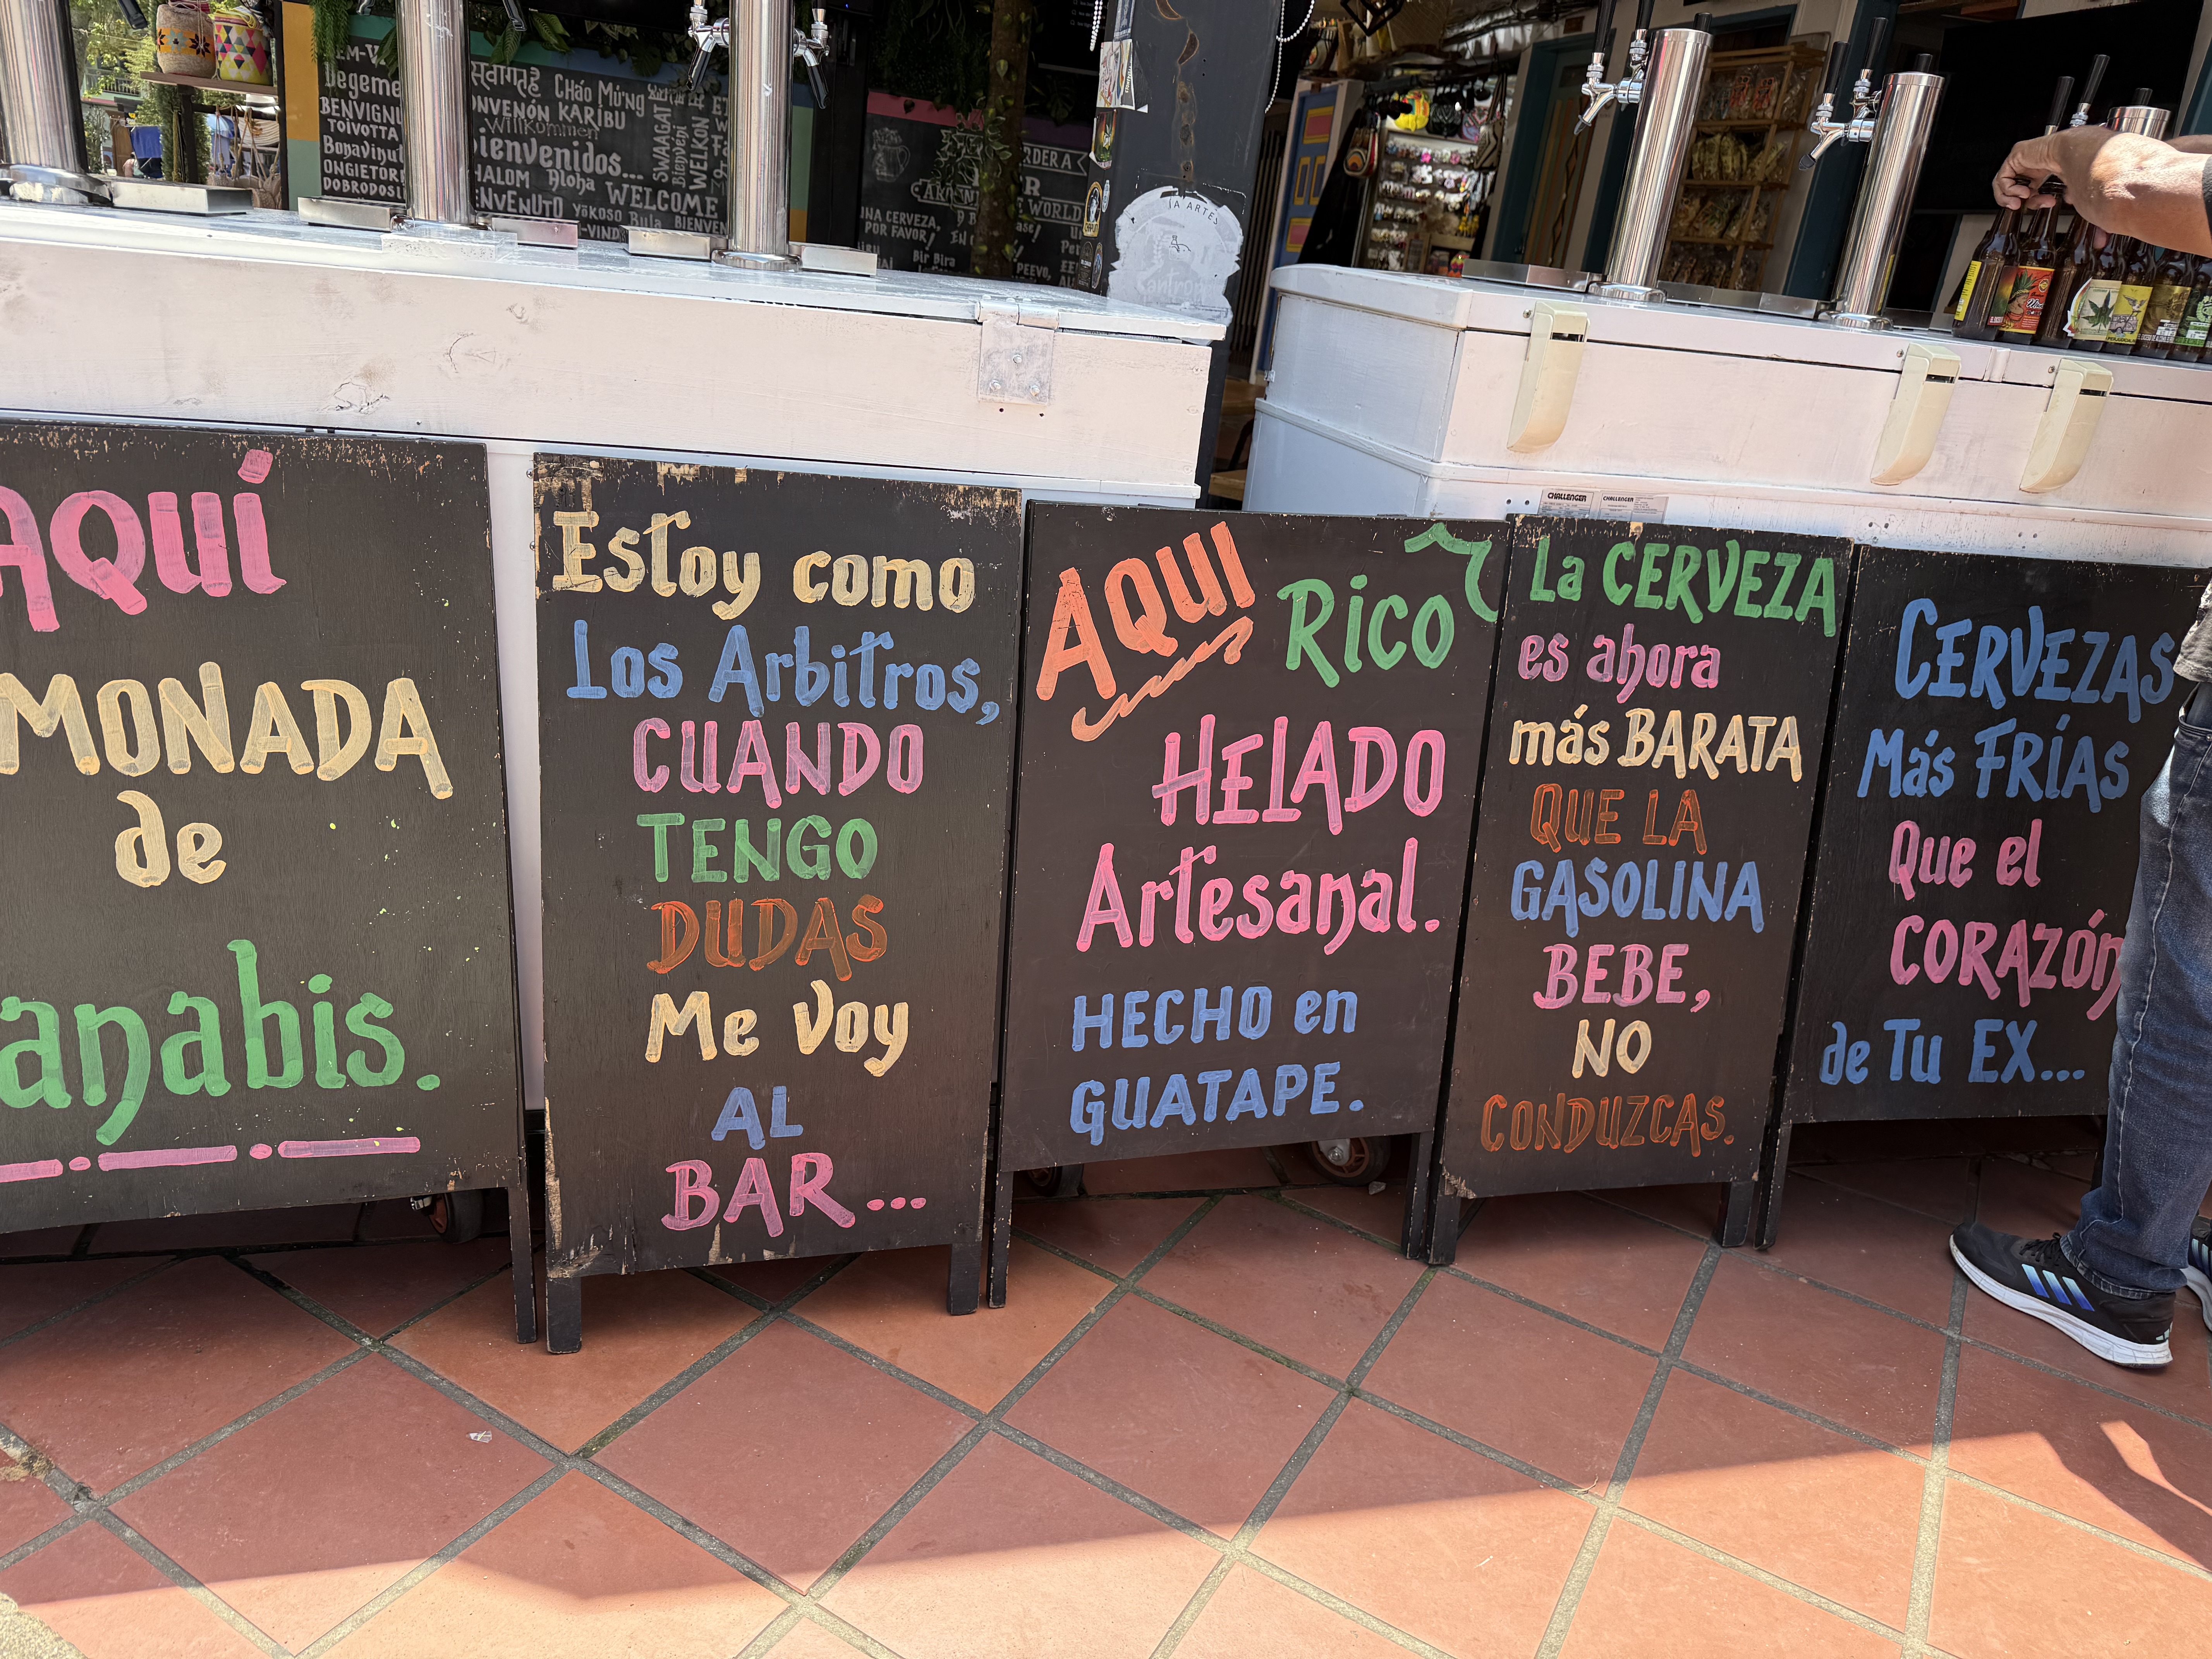 Degeme
BENVIGNU
TOIVOTTA
Bonavinut
ONGIETOR
DOBRODOSLI
स्वागत हे Chào Mừng
KARIBU
Willkommen
Bienvenidos...
SWAAGAT
Bienvenit
WELKOM
Aloha WELCOME
Yōkoso Bula BIENVEN
UNA CERVEZA,
POR FAVOR!
WORLD
Bir Bira
PEEVO,
CHALLENGER CHALLENGER
AQUÍ
MONADA
de
anabis.
Estoy como
Los Arbitros,
CUANDO
TENGO
DUDAS
Me Voy
AL
BAR...
AQUI RICO
HELADO
Artesanal.
HECHO en
GUATAPE.
La CERVEZA
es ahora
más BARATA
QUE LA
GASOLINA
BEBE,
NO
CONDUZCAS.
CERVEZAS
Más FRÍAS
Que el
CORAZÓN
de Tu EX...